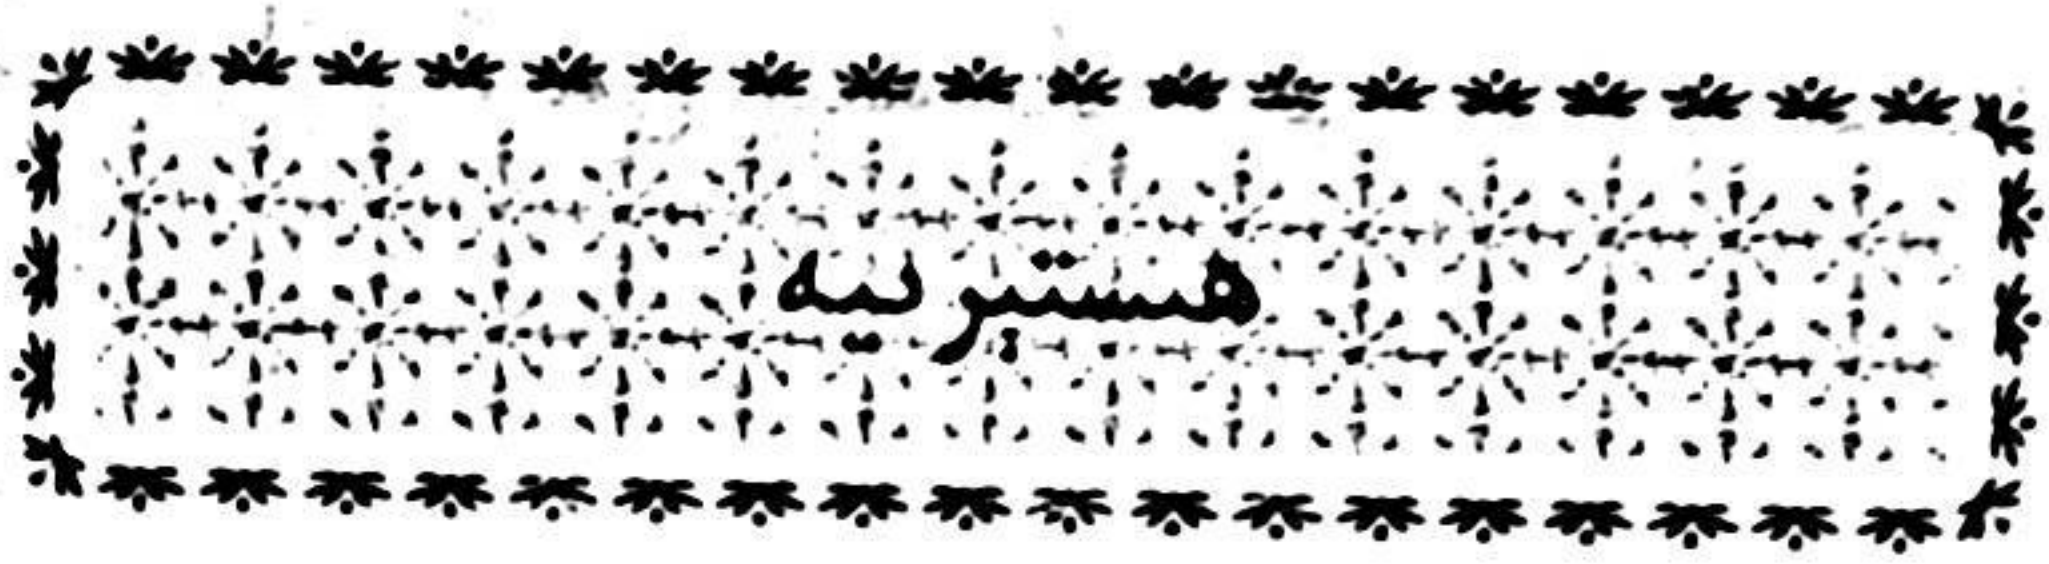 هستيريه